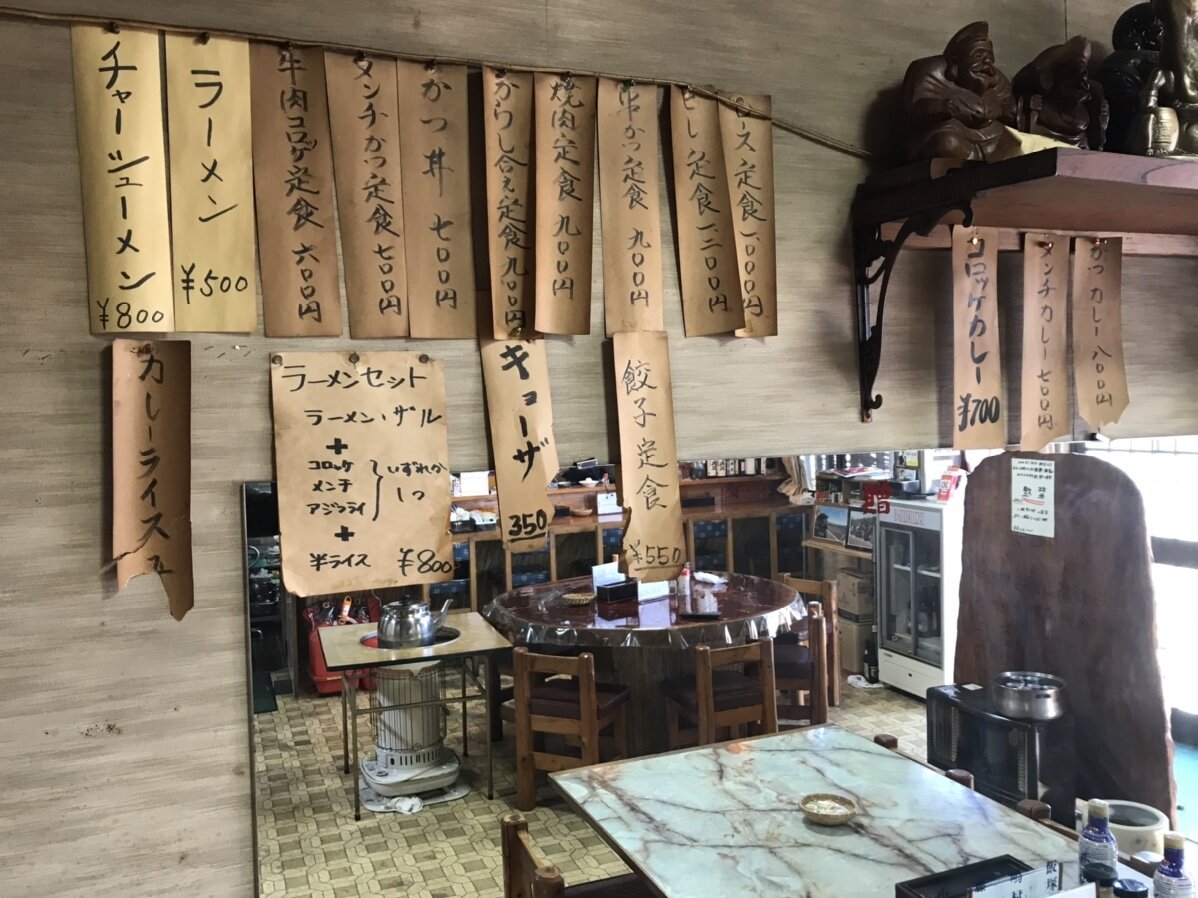 チャーシューメン ¥800
ラーメン ¥500
牛肉コロッケ定食 六〇〇円
メンチかつ定食 七〇〇円
かつ丼 七〇〇円
からし合え定食 九〇〇円
焼肉定食 九〇〇円
串かつ定食 九〇〇円
ヒレ定食 一二〇〇円
ロース定食 一、〇〇〇円
コロッケカレー ¥700
メンチカレー 七〇〇円
かつカレー 八〇〇円
カレーライス
ラーメンセット
ラーメン・ザル
+
コロッケ
メンチ
アジフライ
いずれか
1つ
+
半ライス ¥800
ギョーザ 350
餃子定食 ¥550
贈
飯塚